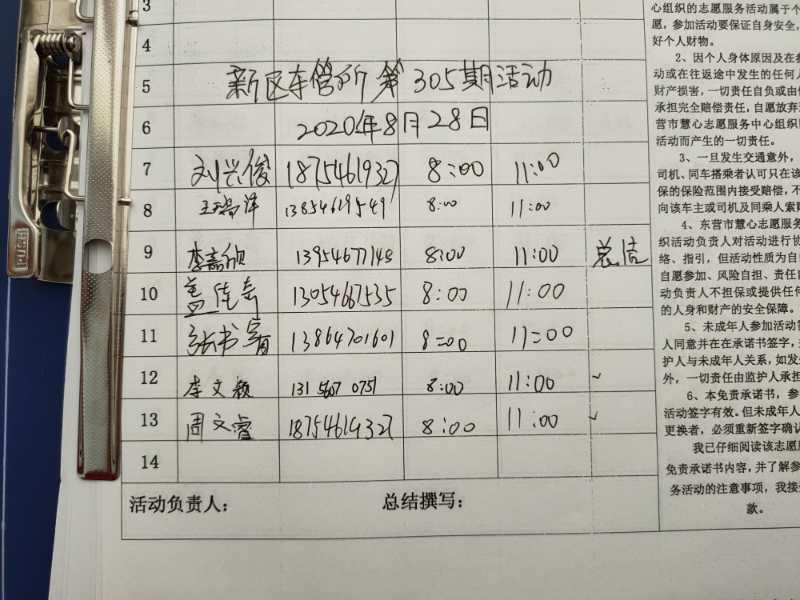 3
4
5 新区车管所第305期活动
6 2020年8月28日
7 刘兴俊 18754619327 8:00 11:00
8 13854619549 8:00 11:00
9 李嘉欣 13954677148 8:00 11:00 总结
10 盖佳奇 13054667535 8:00 11:00
11 张书宵 13864701601 8:00 11:00
12 李文颖 131 5607 0751 8:00 11:00
13 周文睿 18754619327 8:00 11:00
14
活动负责人： 总结撰写：
心组织的志愿服务活动属于个
愿，参加活动要保证自身安全，
好个人财物。
2、因个人身体原因及在参
动或在往返途中发生的任何人
财产损害，一切责任自负或由
承担完全赔偿责任，自愿放弃
营市慧心志愿服务中心组织
活动而产生的一切责任。
3、一旦发生交通意外，
司机、同车搭乘者认可只在该
保的保险范围内接受赔偿，不
向该车主或司机及同乘人索
4、东营市慧心志愿服务
织活动负责人对活动进行协
络、指引，但活动性质为自
自愿参加、风险自担、责任
动负责人不担保或提供任何
的人身和财产的安全保障。
5、未成年人参加活动
人同意并在在承诺书签字，
护人与未成年人关系，如发
外，一切责任由监护人承担
6、本免责承诺书，参
活动签字有效。但未成年人
更换者，必须重新签字确认
我已仔细阅读该志愿
免责承诺书内容，并了解参
务活动的注意事项，我接
款。